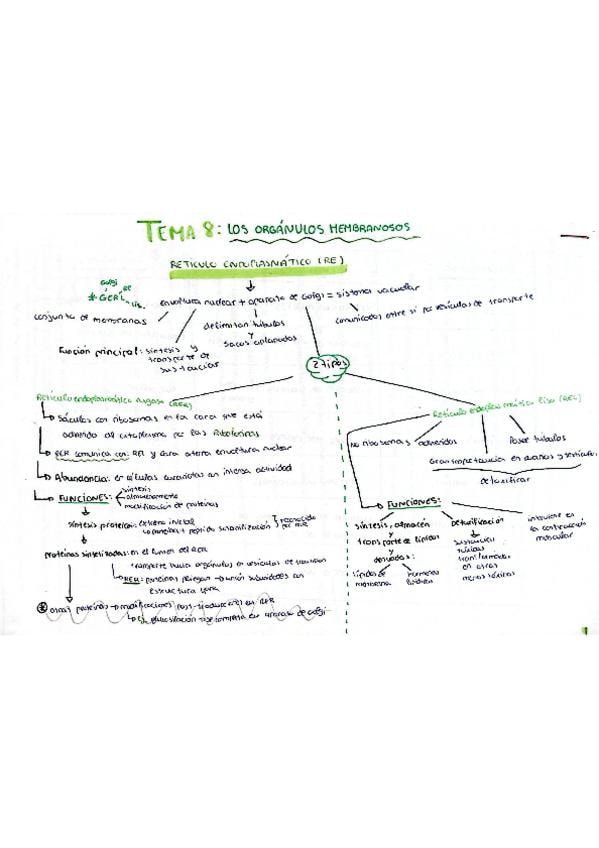 TEMA 8: LOS ORGÁNULOS MEMBRANOSOS
RETICULO ENDOPLASMÁTICO (RE)
Golgi
RE
* GERL
lis.
envoltura nuclear + aparato de Golgi = sistema vacuolar
conjunto de membranas
delimitan túbulos
y
sacos aplanados
comunicados entre sí por vesículas de transporte
Función principal: síntesis y
transporte de
sustancias
2 Tipos
Retículo endoplasmático rugoso (RER)
Sáculos con ribosomas en la cara que está
adherido al citoplasma por las riboforinas
RER comunica con: REL y cara externa envoltura nuclear
Abundancia: en células eucariotas en intensa actividad
FUNCIONES:
síntesis
almacenamiento
modificación de proteínas
síntesis proteica: extremo inicial
proteínas + péptido señalización
reconocido
por
proteínas sintetizadas: en el lumen del RER
transporte hacia orgánulos en vesículas de transición
RER: proteínas pliegan → unión subunidades en
estructura
* otras proteínas → modificaciones post-traduccionales en RER
ej. glucosilación → se completa en aparato de Golgi
Retículo endoplasmático liso (REL)
No ribosomas adheridos
Posee túbulos
Gran importancia en ovarios y testículos
detoxificar
FUNCIONES:
síntesis, almacén
y
transporte de lípidos
y
derivados:
lípidos de
membrana
hormonas
Detoxificación
sustancias
tóxicas
transformadas
en otras
menos tóxicas
interviene en
la contracción
muscular